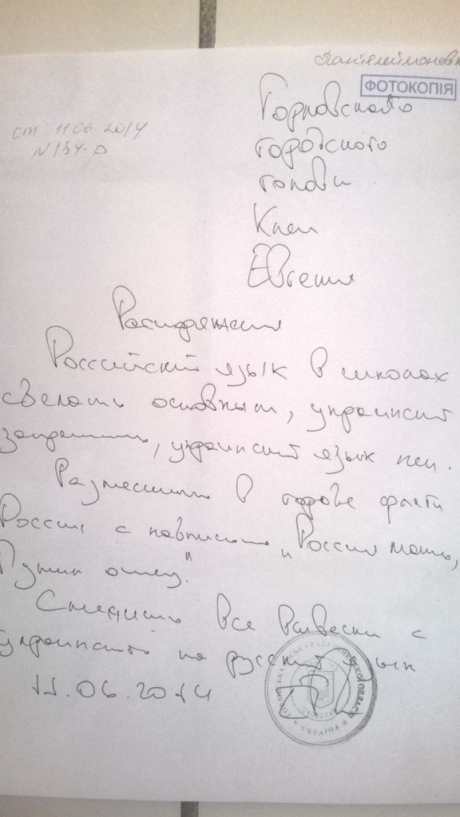 Пантелеймоновк
ФОТОКОПІЯ
от. 11.06.2014
N134-D
Горловского
городского
головы
Клеп
Евгения
Распоряжения
Российский язык в школах
сделать основным, украинский
запретить, украинский язык
Разместить в городе флаги
России с надписью "Россия мать,
Путин отец."
Сменить все вывески с
украинского на русский язык
11.06.2014
УКРАЇНА